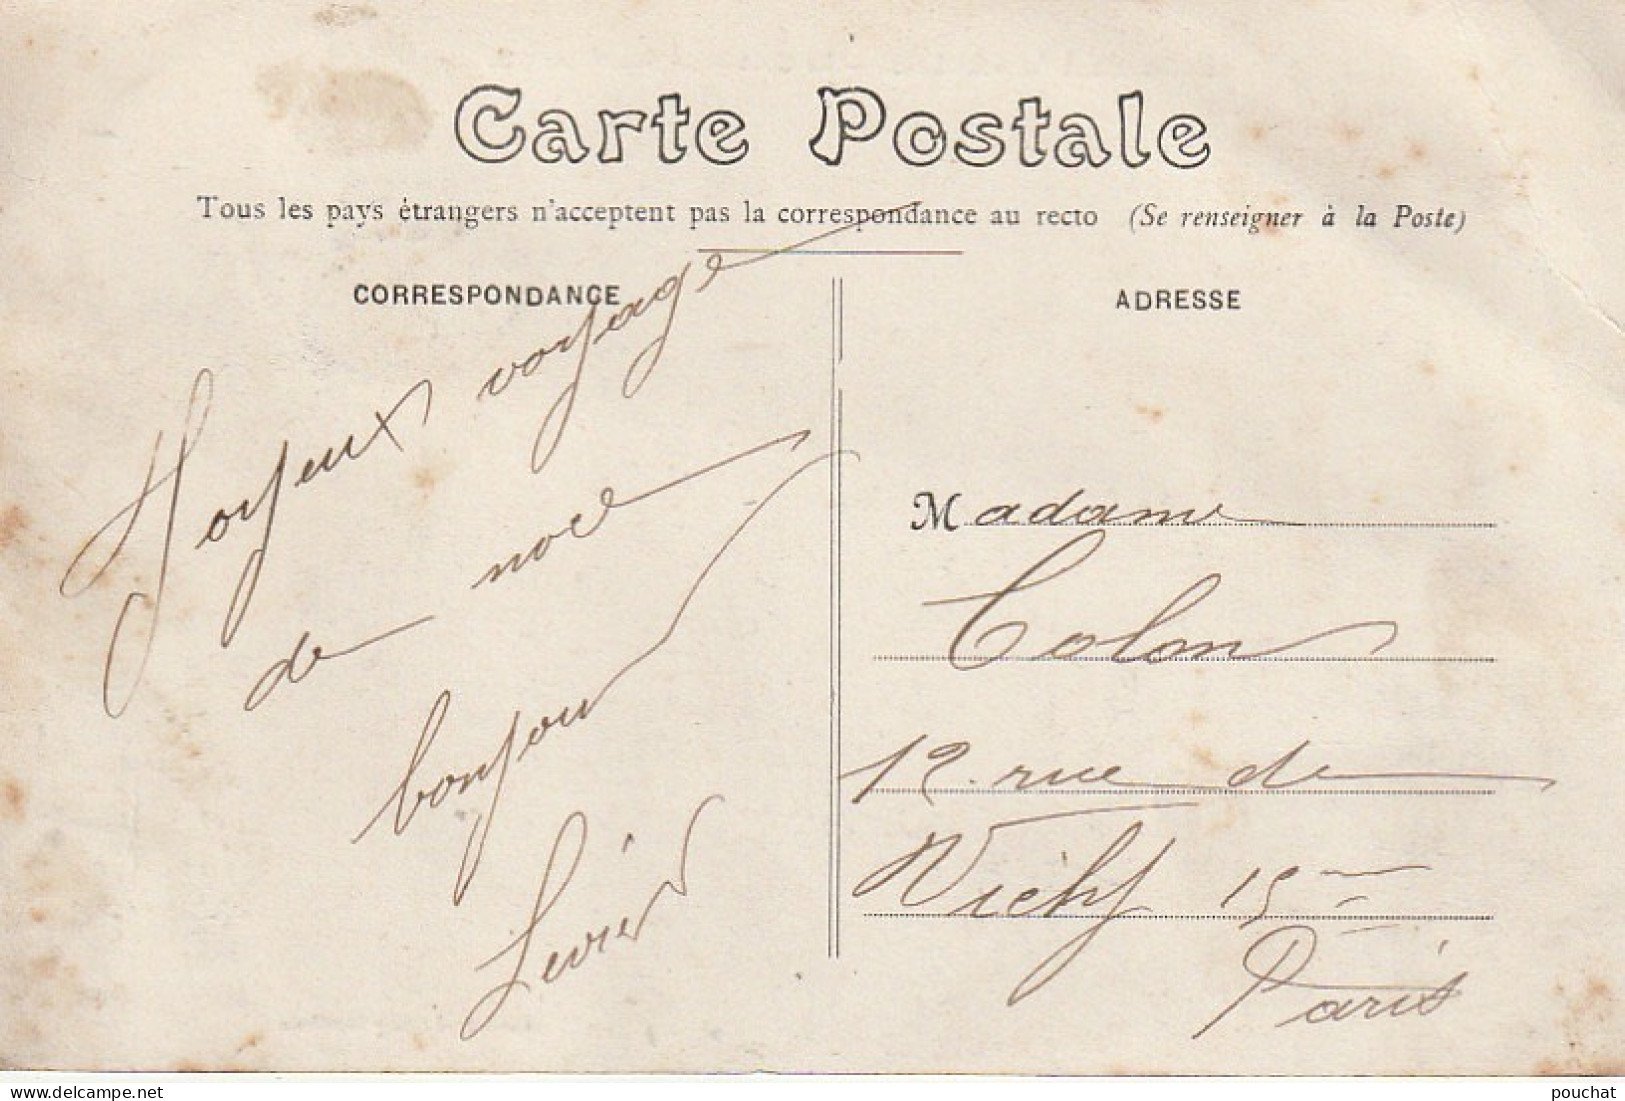 Carte Postale
Tous les pays étrangers n'acceptent pas la correspondance au recto (Se renseigner à la Poste)
CORRESPONDANCE
Joyeux voyage
de noce
bonjour
ADRESSE
Madame
Colon
12 rue de
Vichy 15me
Paris
delcampe.net
pouchat